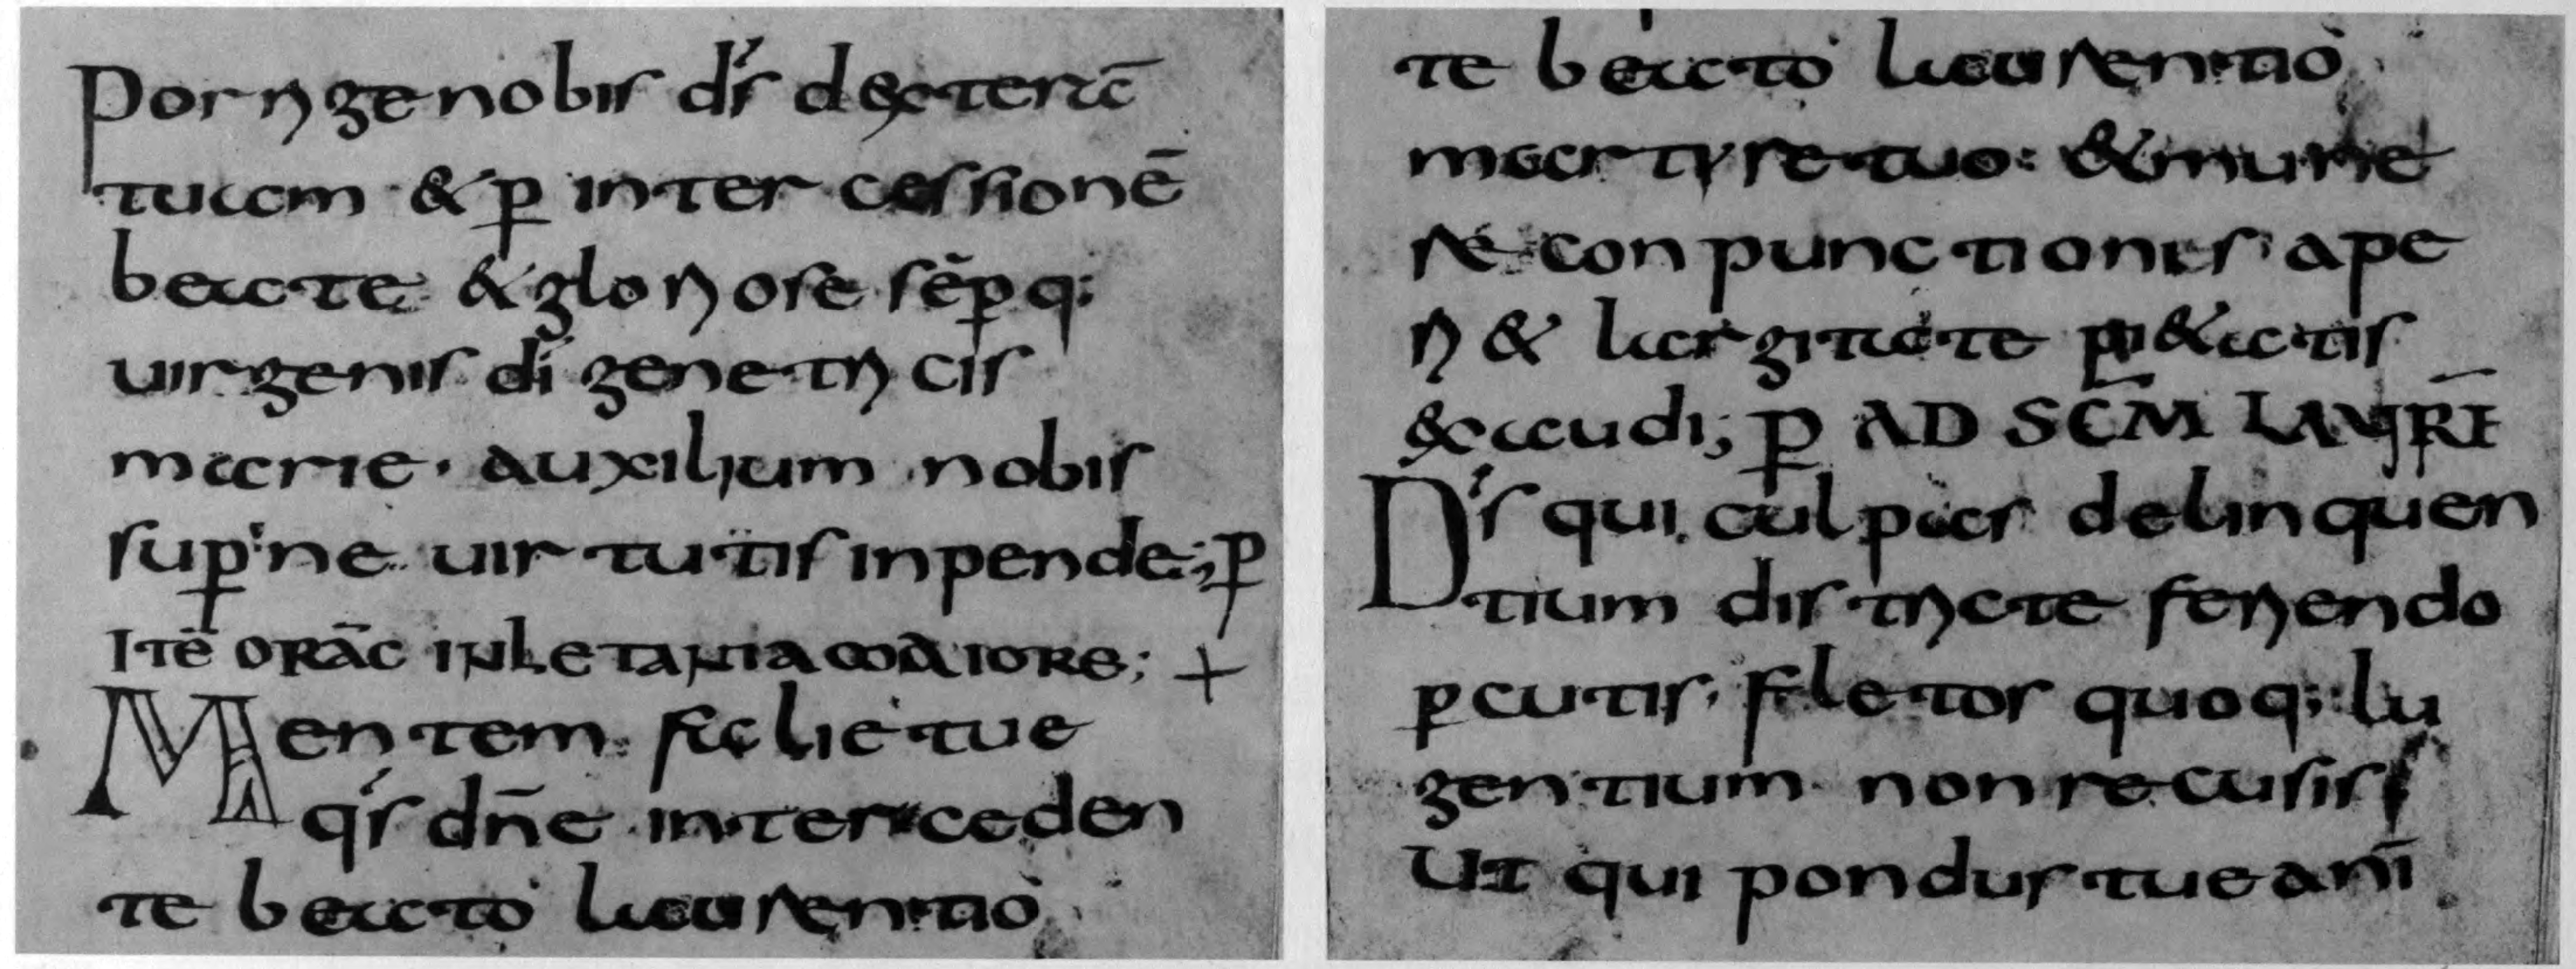 Porrigenobis d̄s dexterā
tuam & p̱ inter cessionē
beate & gloriose sēp̱q;
uirgenis dī genetricis
marie · auxilium nobis
sup̱ne uirtutis inpende; p̱
ITĒ ORĀC INLETANIA MAIORE; +
Mentem faɱlie tue
q̄s dn̄e interceden
te beato laurentio
te beato laurentio
martyre tuo: & mune
re conpunctionis ape
ri & largitate pi&atis
exaudi; p̱ AD SC̄M LAURĒ
D̄s qui culpas delinquen
tium districte feriendo
p̱cutis, fletos quoq; lu
gentium non recusis
Ut qui pondus tue anī